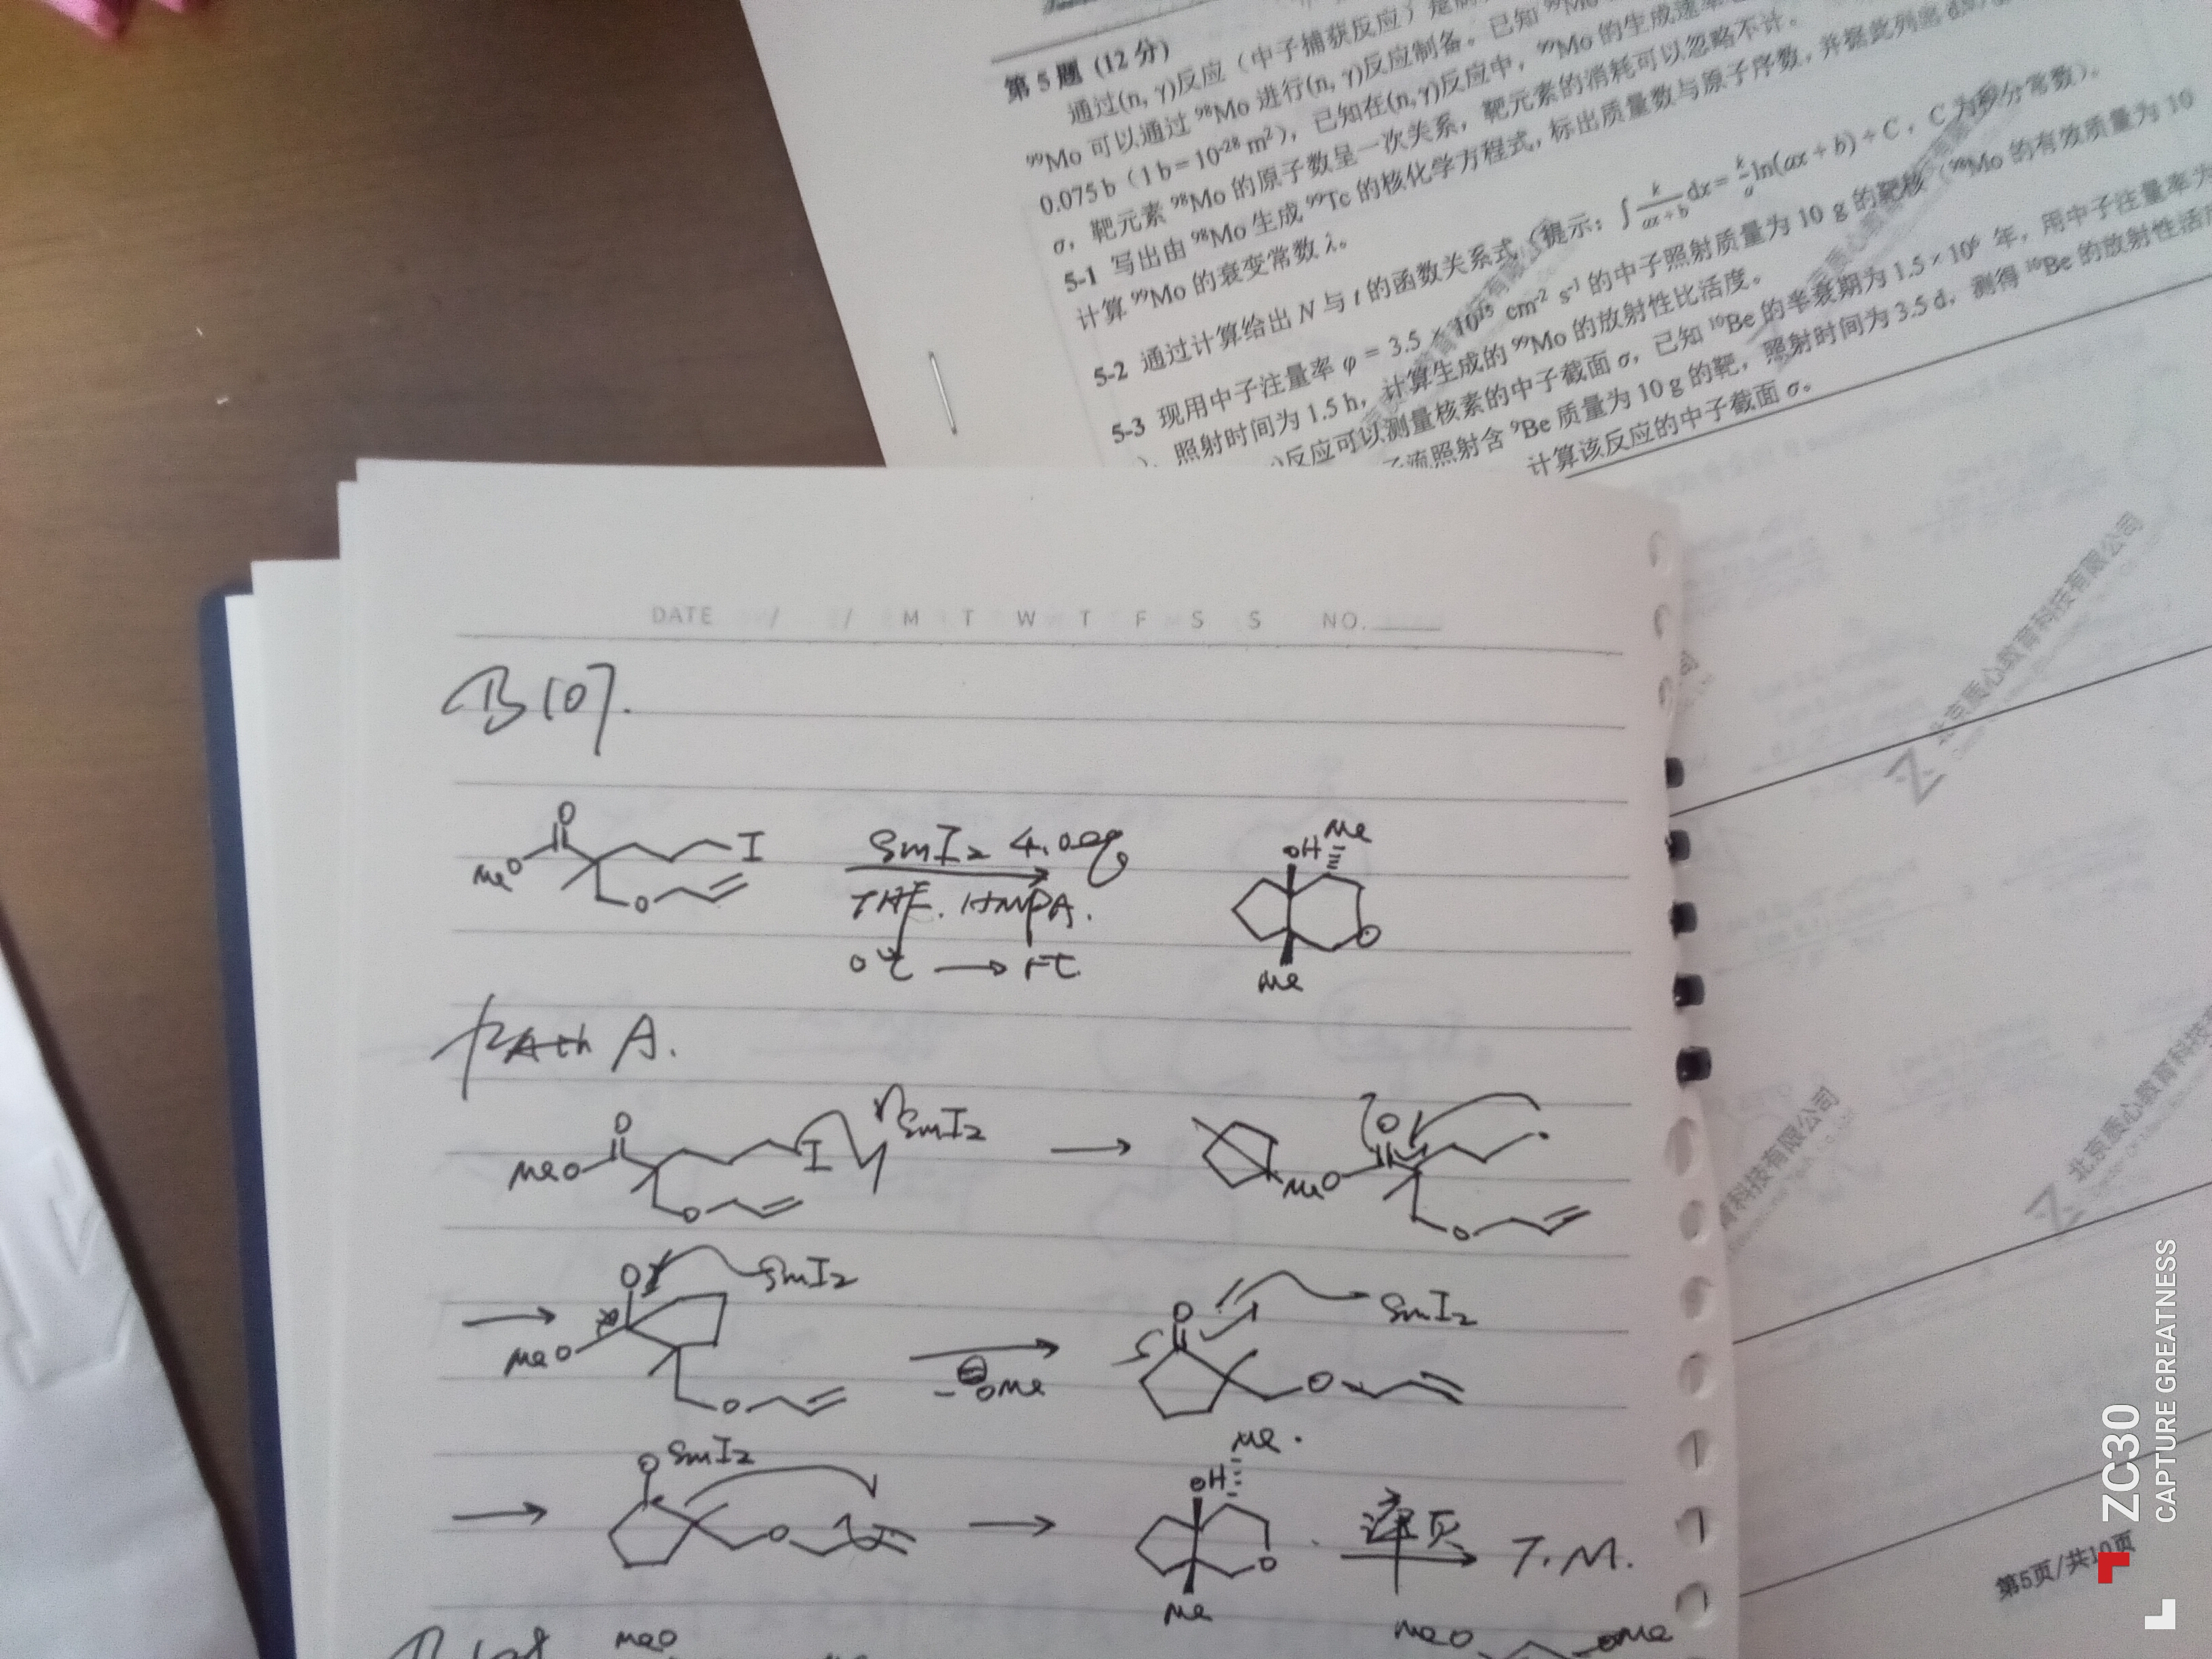 第 5 题 (12 分)
通过(n, γ)反应（中子捕获反应）是
⁹⁹Mo 可以通过 ⁹⁸Mo 进行(n, γ)反应制备。已知 ⁹⁸Mo
0.075 b（1 b = 10⁻²⁸ m²），已知在(n,γ)反应中，⁹⁹Mo 的生成速率
σ，靶元素 ⁹⁸Mo 的原子数呈一次关系，靶元素的消耗可以忽略不计。
5-1 写出由 ⁹⁸Mo 生成 ⁹⁹Tc 的核化学方程式，标出质量数与原子序数，并据此列出
计算 ⁹⁹Mo 的衰变常数 λ。
5-2 通过计算给出 N 与 t 的函数关系式（提示：∫ k/(ax+b) dx = k/a ln(ax + b) + C，C 为积分常数）。
5-3 现用中子注量率 φ = 3.5 × 10¹⁵ cm⁻² s⁻¹ 的中子照射质量为 10 g 的靶核（⁹⁸Mo 的有效质量为 10
），照射时间为 1.5 h，计算生成的 ⁹⁹Mo 的放射性比活度。
)反应可以测量核素的中子截面 σ，已知 ¹⁰Be 的半衰期为 1.5 × 10⁶ 年，用中子注量率为
子流照射含 ⁹Be 质量为 10 g 的靶，照射时间为 3.5 d，测得 ¹⁰Be 的放射性活
计算该反应的中子截面 σ。
DATE / / M T W T F S S NO.
B107.
O
MeO
I
O
SmI₂ 4.0eq
THF. HMPA.
0℃ → rt
OH Me
O
Me
path A.
O
MeO
I
SmI₂
O
O
MeO
O
O
SmI₂
MeO
O
-⊖OMe
O
SmI₂
O
O SmI₂
O
Me.
OH
O
Me
淬灭
T.M.
MeO
MeO
OMe
北京质心教育科技有限公司
北京质心教育科技有限公司
育科技有限公司
第5页/共10页
ZC30
CAPTURE GREATNESS